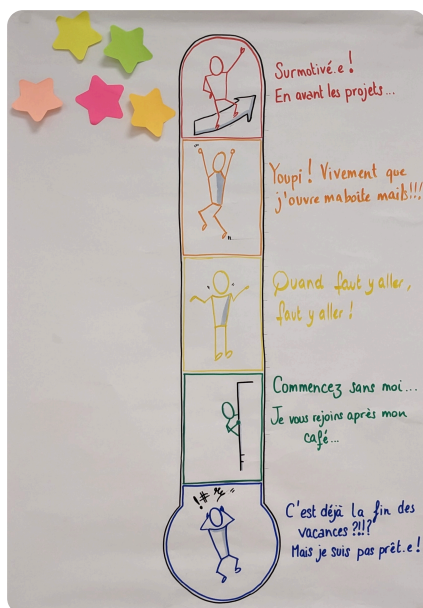 Surmotivé.e !
En avant les projets...
Youpi ! Vivement que
j'ouvre ma boite mails !!!
Quand faut y aller,
faut y aller !
Commencez sans moi...
Je vous rejoins après mon
café...
!#
C'est déjà la fin des
vacances ?!!?
Mais je suis pas prêt.e !